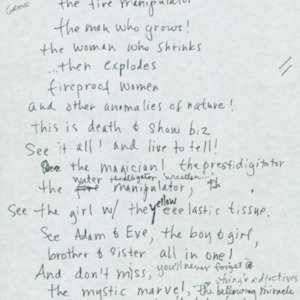 the fire manipulator
the man who grows!
the woman who shrinks
...then explodes
fireproof women
and other anomalies of nature!
This is death & show biz
See it all! and live to tell!
the magician! the prestidigitator
water
the fire manipulator,
yellow
See the girl w/ the eeelastic tissue.
See Adam & Eve, the boy & girl,
brother & sister all in one!
And don't miss, you'll never forget @
strings adjectives
the mystic marvel, the bellowing miracle